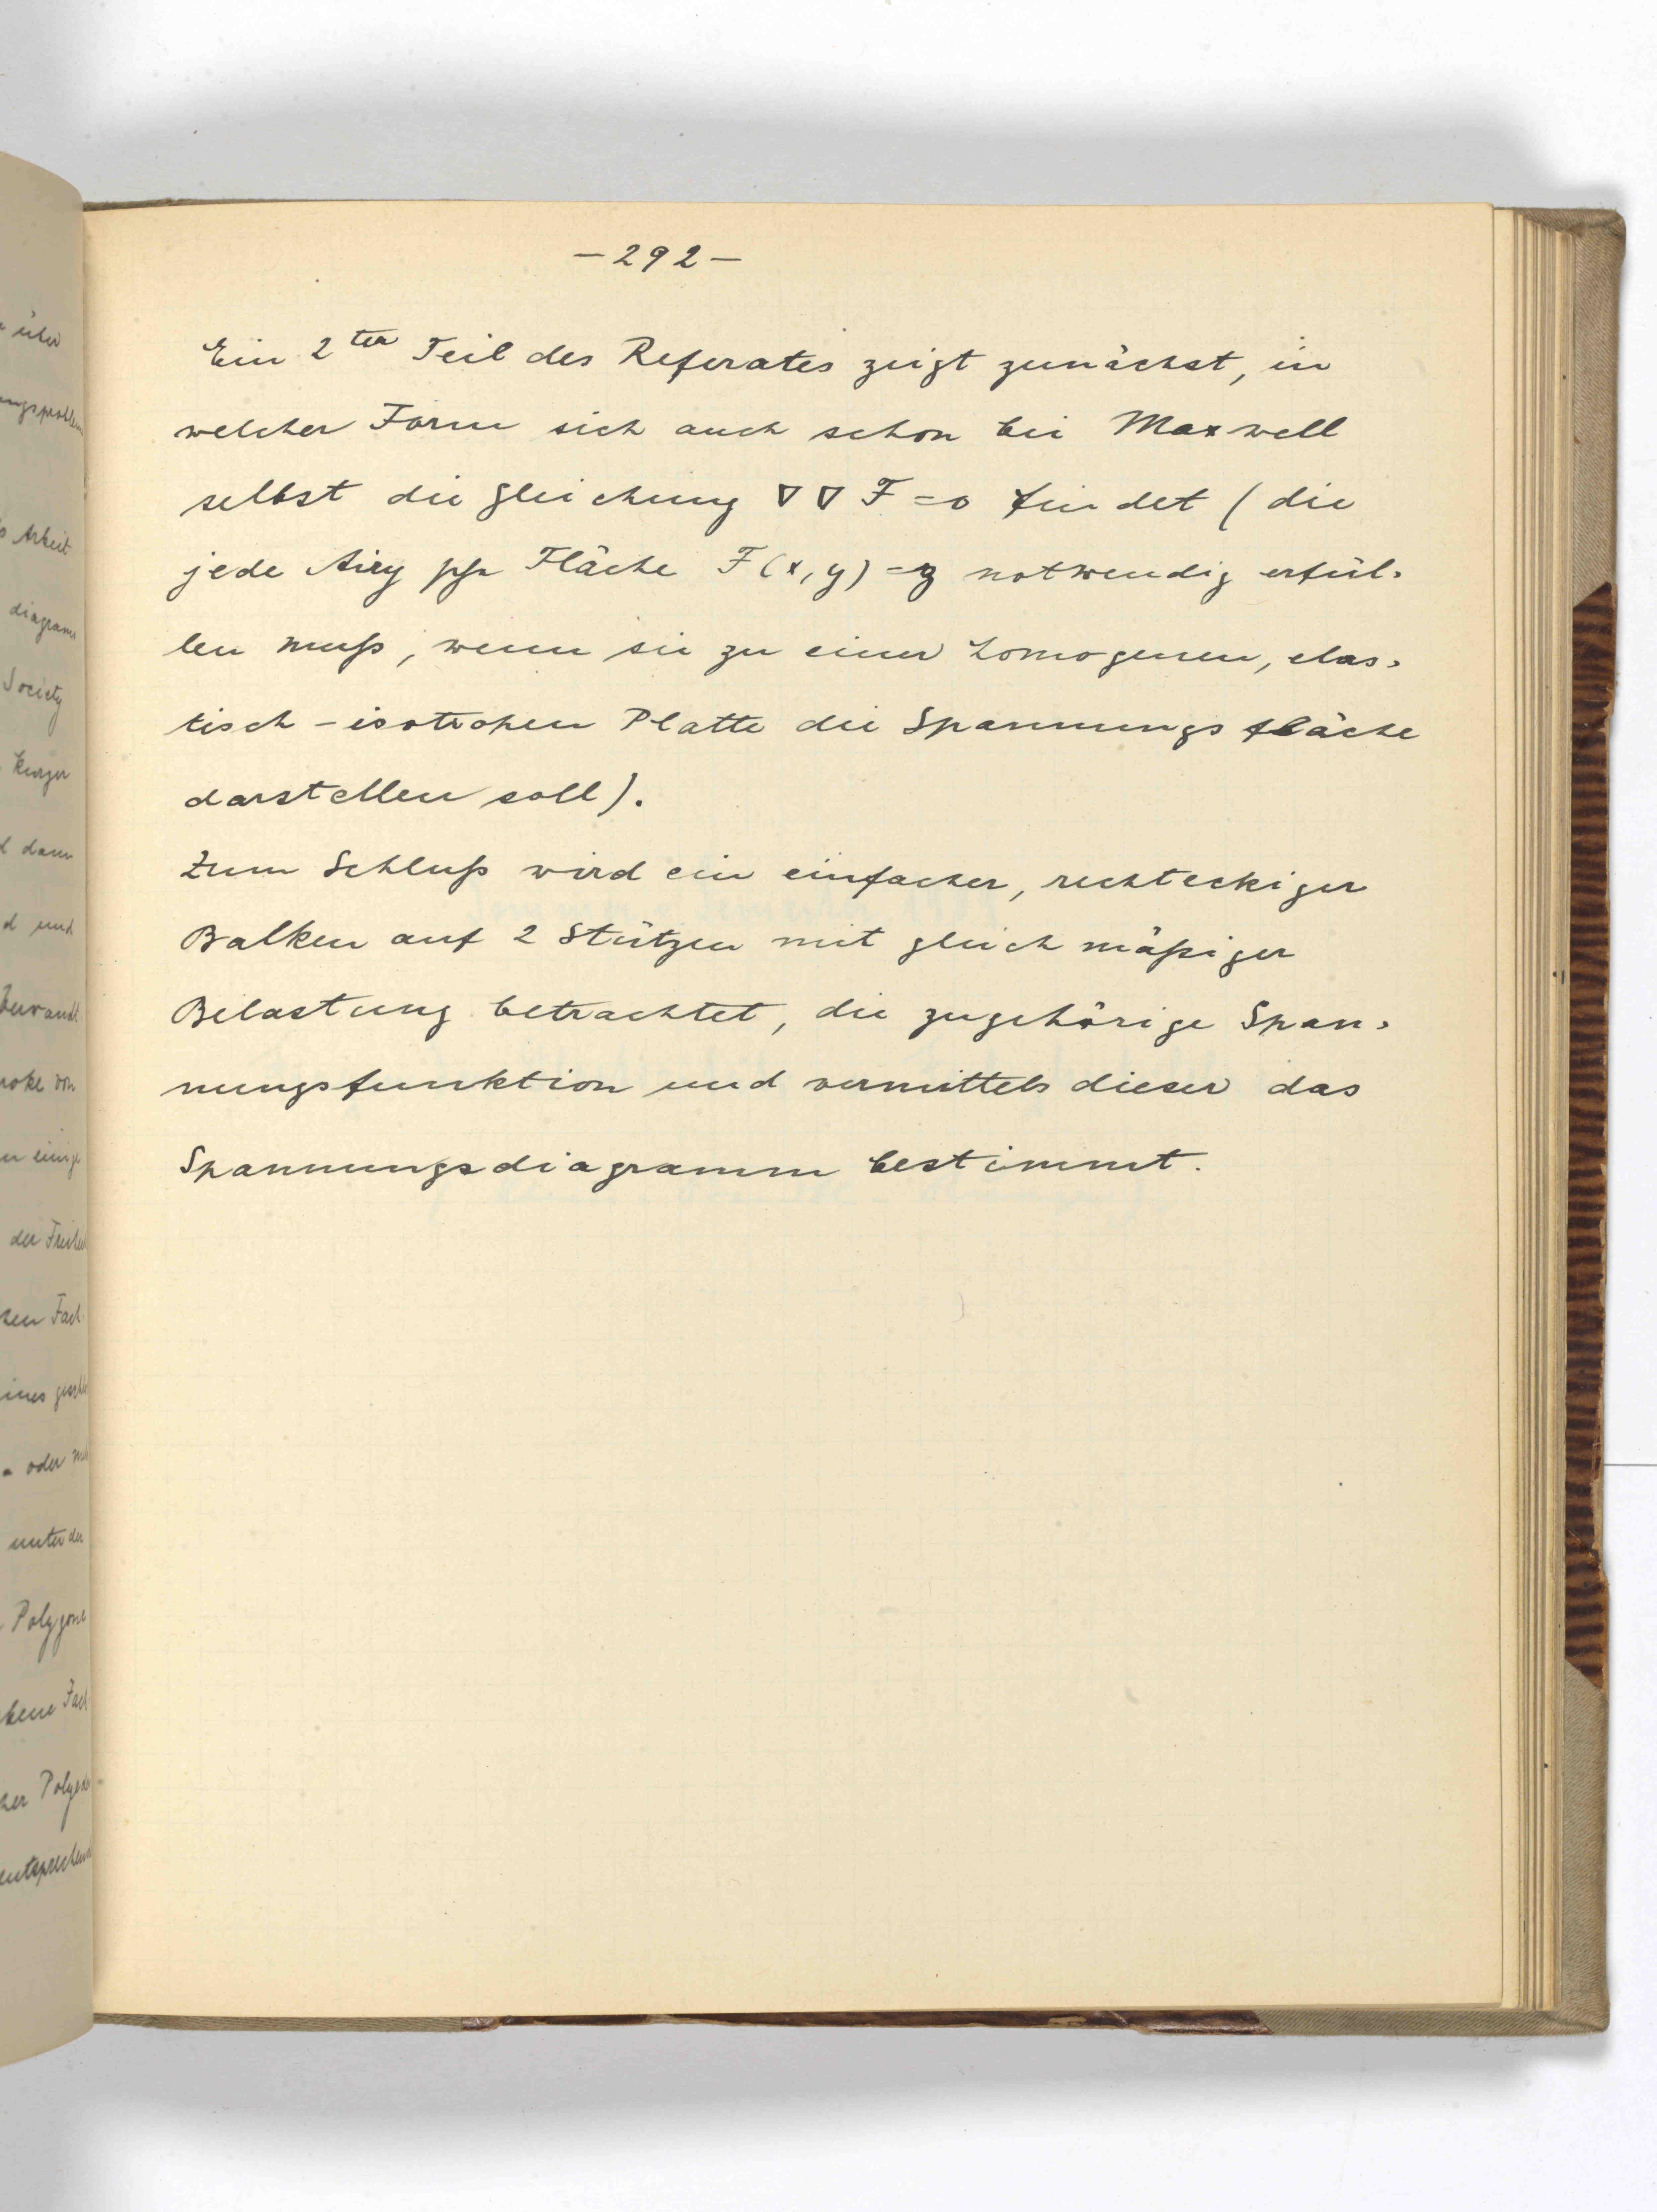 – 292 –
Ein 2ter Teil des Referates zeigt zunächst, in
welcher Form sich auch schon bei Maxwell
selbst die Gleichung ∇∇F=0 findet (die
jede Airy sche Fläche F(x,y)=z notwendig erfül-
len muß, wenn sie zu einer homogenen, elas-
tisch-isotropen Platte die Spannungsfläche
darstellen soll).
Zum Schluß wird ein einfacher, rechteckiger
Balken auf 2 Stützen mit gleichmäßiger
Belastung betrachtet, die zugehörige Span-
nungsfunktion und vermittels dieser das
Spannungsdiagramm bestimmt.
über
Arbeit
diagramm
Society
kurzer
dann
und
von
der
oder
unter der
Polygone